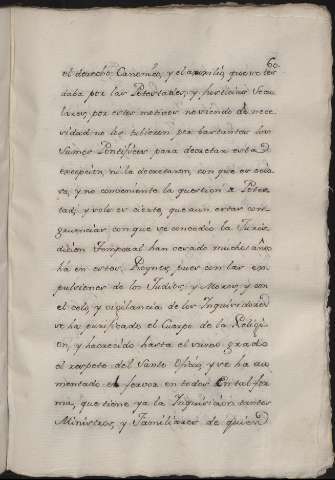 60
el derecho Canonico, y el auxilio, que se les
daba por las Potestades, y Justicias Secu
lares, por estos motivos no siendo de nece
sidad no los tubieron por bastantes los
Sumos Pontifices para decretar esta
excepcion, ni la decretaron, con que es ocio
sa, y no conveniente la question a Potes
tad; y solo es cierto, que aun estas con
gruencias, con que se concedio la Juris
diccion Temporal han cesado muchos años
há en estos Reynos, pues con las ex
pulsiones de los Judios, y Moros, y con
el celo, y vigilancia de los Inquisidores
se ha purificado el Cuerpo de la Religi
on, y ha crecido hasta el sumo grado
el respeto del Santo Oficio, y se ha au
mentado el fervor en todos en tal for
ma, que tiene ya la Inquisicion tantos
Ministros, y Familiares de quien